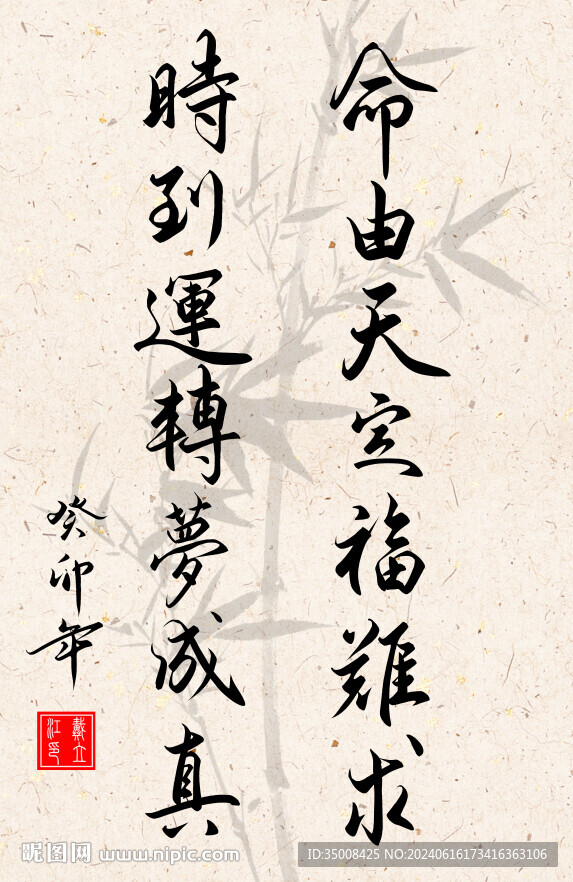 命由天定福難求
時到運轉夢成真
癸卯年
戴立
江印
昵图网 www.nipic.com
ID:35008425 NO:20240616173416363106